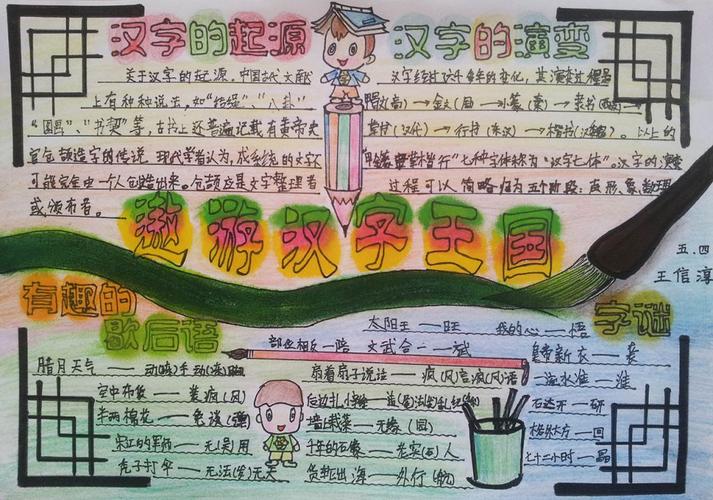 汉字的起源
关于汉字的起源,中国古代文献
上有种种说法,如"结绳"、"八卦"
"图画"、"书契"等,古书上还普遍记载有黄帝史
官仓颉造字的传说。现代学者认为,成系统的文字
可能完全由一个人创造出来。仓颉应是文字整理者
或颁布者。
汉字的演变
汉字经过六千多年的变化,其演变过程是
甲骨文(商)→金文(周)→小篆(秦)→隶书(西汉)→
草书(汉代)→行书(东汉)→楷书(汉末魏)。以上的
七种字体称为"汉字七体"。汉字的演变
过程可以简略归为五个阶段:声、形、象、数、理
遨游汉字王国
五.四
王信淳
有趣的
歇后语
腊月天气——动(冻)手动(冻)脚
空中布袋——装疯(风)
半两棉花——免谈(弹)
宋江的军师——无(吴)用
虎子打伞——无法(发)无天
扇着扇子说话——疯(风)言疯(风)语
墙上栽菜——无缘(园)
千年的石像——老实(石)人
货船出海——外行(航)
字谜
太阳王——旺
我的心——悟
部位相反——陪
文武合一——斌
皇帝新衣——袭
石达开——研
格外大方——回
七十二小时——晶